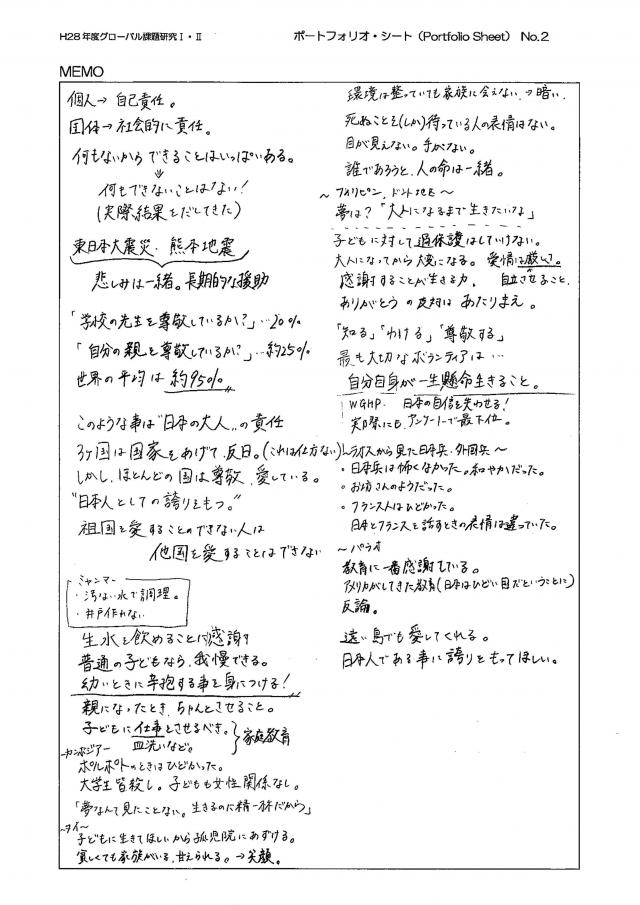 H28年度グローバル課題研究Ⅰ・Ⅱ
ポートフォリオ・シート（Portfolio Sheet） No.2
MEMO
個人→自己責任。
団体→社会的に責任。
何もないからできることはいっぱいある。
⇓
何もできないことはない！
(実際結果をだしてきた)
東日本大震災、熊本地震
悲しみは一緒。長期的な援助
「学校の先生を尊敬しているか？」…20%
「自分の親を尊敬しているか？」…約25%
世界の平均は約95%
このような事は"日本の大人"の責任
3ヶ国は国家をあげて反日。(これは仕方ない)
しかし、ほとんどの国は尊敬、愛している。
"日本人としての誇りをもつ。"
祖国を愛することのできない人は
他国を愛することはできない
ミャンマー
・汚ない水で調理。
・井戸作れない
生水を飲めることに感謝す
普通の子どもなら、我慢できる。
幼いときに辛抱する事を身につける！
親になったとき、ちゃんとさせること。
子どもに仕事とさせるべき。
皿洗いなど。
家庭教育
～カンボジア～
ポルポトのときはひどかった。
大学生皆殺し。子どもも女性関係なし。
「夢なんて見たことない。生きるのに精一杯だから」
～タイ～
子どもに生きてほしいから孤児院にあずける。
貧しくても家族がいる、甘えられる。→笑顔。
環境は整っていても家族に会えない→暗い。
死ぬことを(しか)待っている人の表情はない。
目が見えない。手がない。
誰であろうと、人の命は一緒。
～フィリピン、ドント地区～
夢は？「大人になるまで生きたいな」
子どもに対して過保護はしていけない。
大人になってから大変になる。愛情は厳しさ。
感謝することが生きる力、自立させること、
ありがとうの反対はあたりまえ。
「知る」「わける」「尊敬する」
最も大切なボランティアは…
自分自身が一生懸命生きること。
WGHP、日本の自信を失わせる！
実際にも、アンケートで最下位。
～ラオスから見た日本兵・外国兵～
・日本兵は怖くなかった。和やかだった。
・お坊さんのようだった。
・フランス人はひどかった。
日本とフランスを話すときの表情は違っていた。
～パラオ
教育に一番感謝している。
アメリカがしてきた教育(日本はひどい国だということに)
反論。
遠い島でも愛してくれる。
日本人である事に誇りをもってほしい。